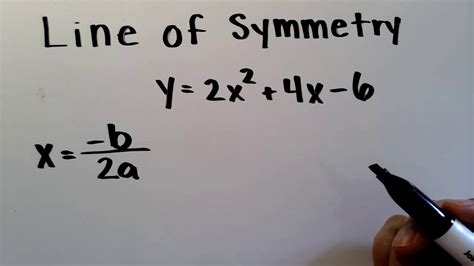 Line of Symmetry
y = 2x² + 4x - 6
x = -b/2a